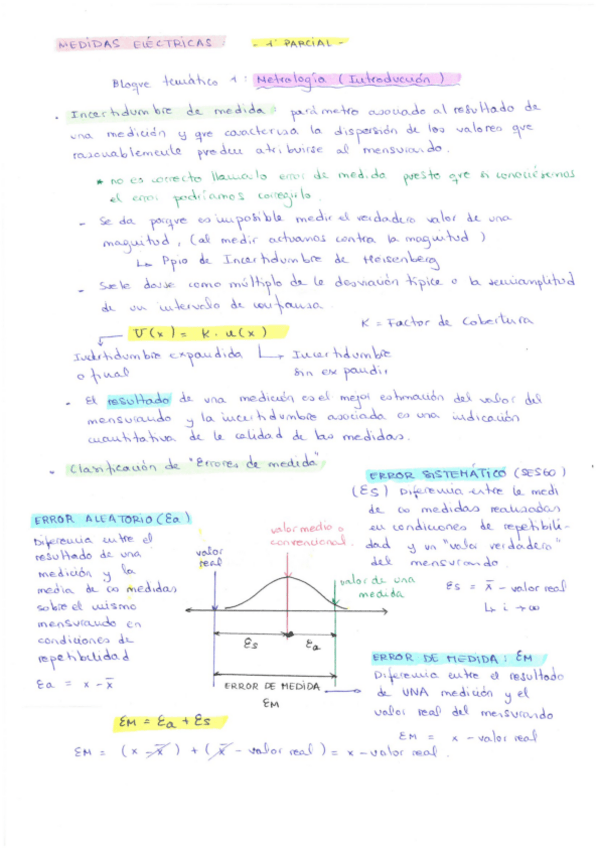 MEDIDAS ELÉCTRICAS: - 1º PARCIAL -
Bloque temático 1: Metrología (Introducción)
· Incertidumbre de medida: parámetro asociado al resultado de
una medición y que caracteriza la dispersión de los valores que
razonablemente pueden atribuirse al mensurando.
* no es correcto llamarlo error de medida puesto que si conociéramos
el error podríamos corregirlo.
- Se da porque es imposible medir el verdadero valor de una
magnitud, (al medir actuamos contra la magnitud)
↳ Ppio de Incertidumbre de Heisenberg
- Suele darse como múltiplo de la desviación típica o la semiamplitud
de un intervalo de confianza.
U(x) = K · u(x) K = Factor de cobertura
Incertidumbre expandida ↳ Incertidumbre
o final sin expandir
- El resultado de una medición es el mejor estimación del valor del
mensurando y la incertidumbre asociada es una indicación
cuantitativa de la calidad de las medidas.
· Clasificación de "Errores de medida"
ERROR SISTEMÁTICO (SESGO)
(Es) Diferencia entre la medi
de ∞ medidas realizadas
en condiciones de repetibili-
dad y un "valor verdadero"
del mensurando.
Es = x̄ - valor real
↳ i → ∞
ERROR ALEATORIO (Ea)
Diferencia entre el
resultado de una
medición y la
media de ∞ medidas
sobre el mismo
mensurando en
condiciones de
repetibilidad
Ea = x - x̄
valor medio o
convencional
valor
real
valor de una
medida
Es Ea
ERROR DE MEDIDA
EM
ERROR DE MEDIDA: EM
Diferencia entre el resultado
de UNA medición y el
valor real del mensurando
EM = x - valor real
EM = Ea + Es
EM = (x - x̄) + (x̄ - valor real) = x - valor real.